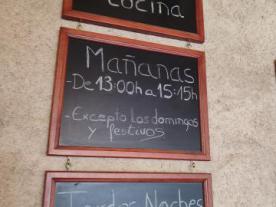 Cocina
Mañanas
-De 13:00h a 15:15h
-Excepto los domingos
y festivos
Tardes Noches